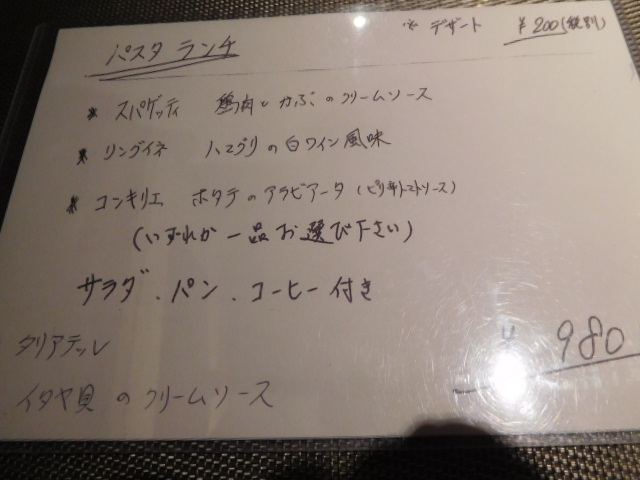 パスタ ランチ
※ デザート ¥200(税別)
* スパゲッティ 鶏肉とかぶのクリームソース
* リングイネ ハマグリの白ワイン風味
* コンキリエ ホタテのアラビアータ (ピリ辛トマトソース)
(いずれか一品お選び下さい)
サラダ . パン . コーヒー付き
¥ 980
タリアテッレ
イタヤ貝 の クリームソース